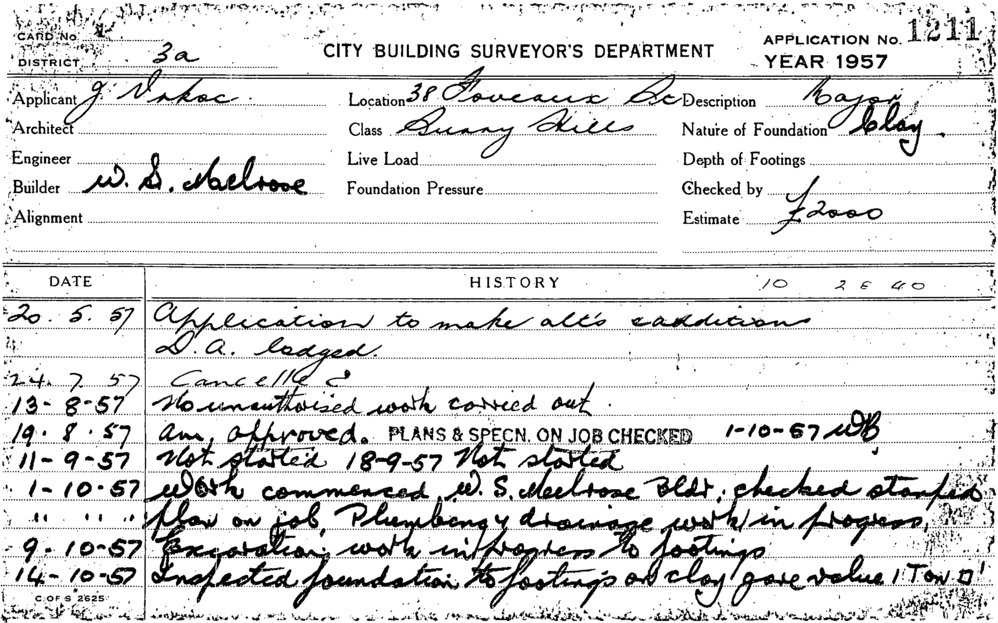 CARD No. 1
DISTRICT 3a
CITY BUILDING SURVEYOR'S DEPARTMENT
APPLICATION No. 1211
YEAR 1957
Applicant J Location 38 Foveaux Description Major
Architect Class Surry Hills Nature of Foundation Clay.
Engineer Live Load Depth of Footings
Builder W. S. Melrose Foundation Pressure Checked by
Alignment Estimate £2000
DATE HISTORY 10 2 E 40
20. 5. 57 Application to make alt's & additions
D.A. lodged.
24. 7. 57 Cancelled
13-8-57 No unauthorised work carried out.
19. 8. 57 am, approved. PLANS & SPECN. ON JOB CHECKED 1-10-57 WB
11-9-57 Not started 18-9-57 Not started
1-10-57 Work commenced, W. S. Melrose Bldr, checked stamped
" " " plan on job, Plumbing & drainage work in progress,
9-10-57 Excavation work in progress to footings
14-10-57 Inspected foundation to footings on clay gave value 1 Ton □'
C OF S 2625